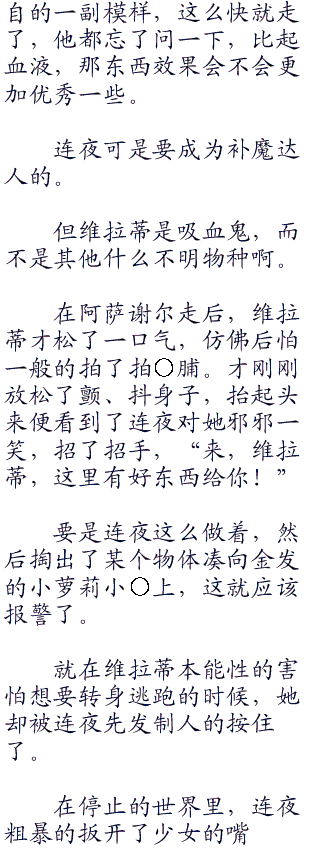 自的一副模样，这么快就走
了，他都忘了问一下，比起
血液，那东西效果会不会更
加优秀一些。
连夜可是要成为补魔达
人的。
但维拉蒂是吸血鬼，而
不是其他什么不明物种啊。
在阿萨谢尔走后，维拉
蒂才松了一口气，仿佛后怕
一般的拍了拍〇脯。才刚刚
放松了颤、抖身子，抬起头
来便看到了连夜对她邪邪一
笑，招了招手，“来，维拉
蒂，这里有好东西给你！”
要是连夜这么做着，然
后掏出了某个物体凑向金发
的小萝莉小〇上，这就应该
报警了。
就在维拉蒂本能性的害
怕想要转身逃跑的时候，她
却被连夜先发制人的按住
了。
在停止的世界里，连夜
粗暴的扳开了少女的嘴